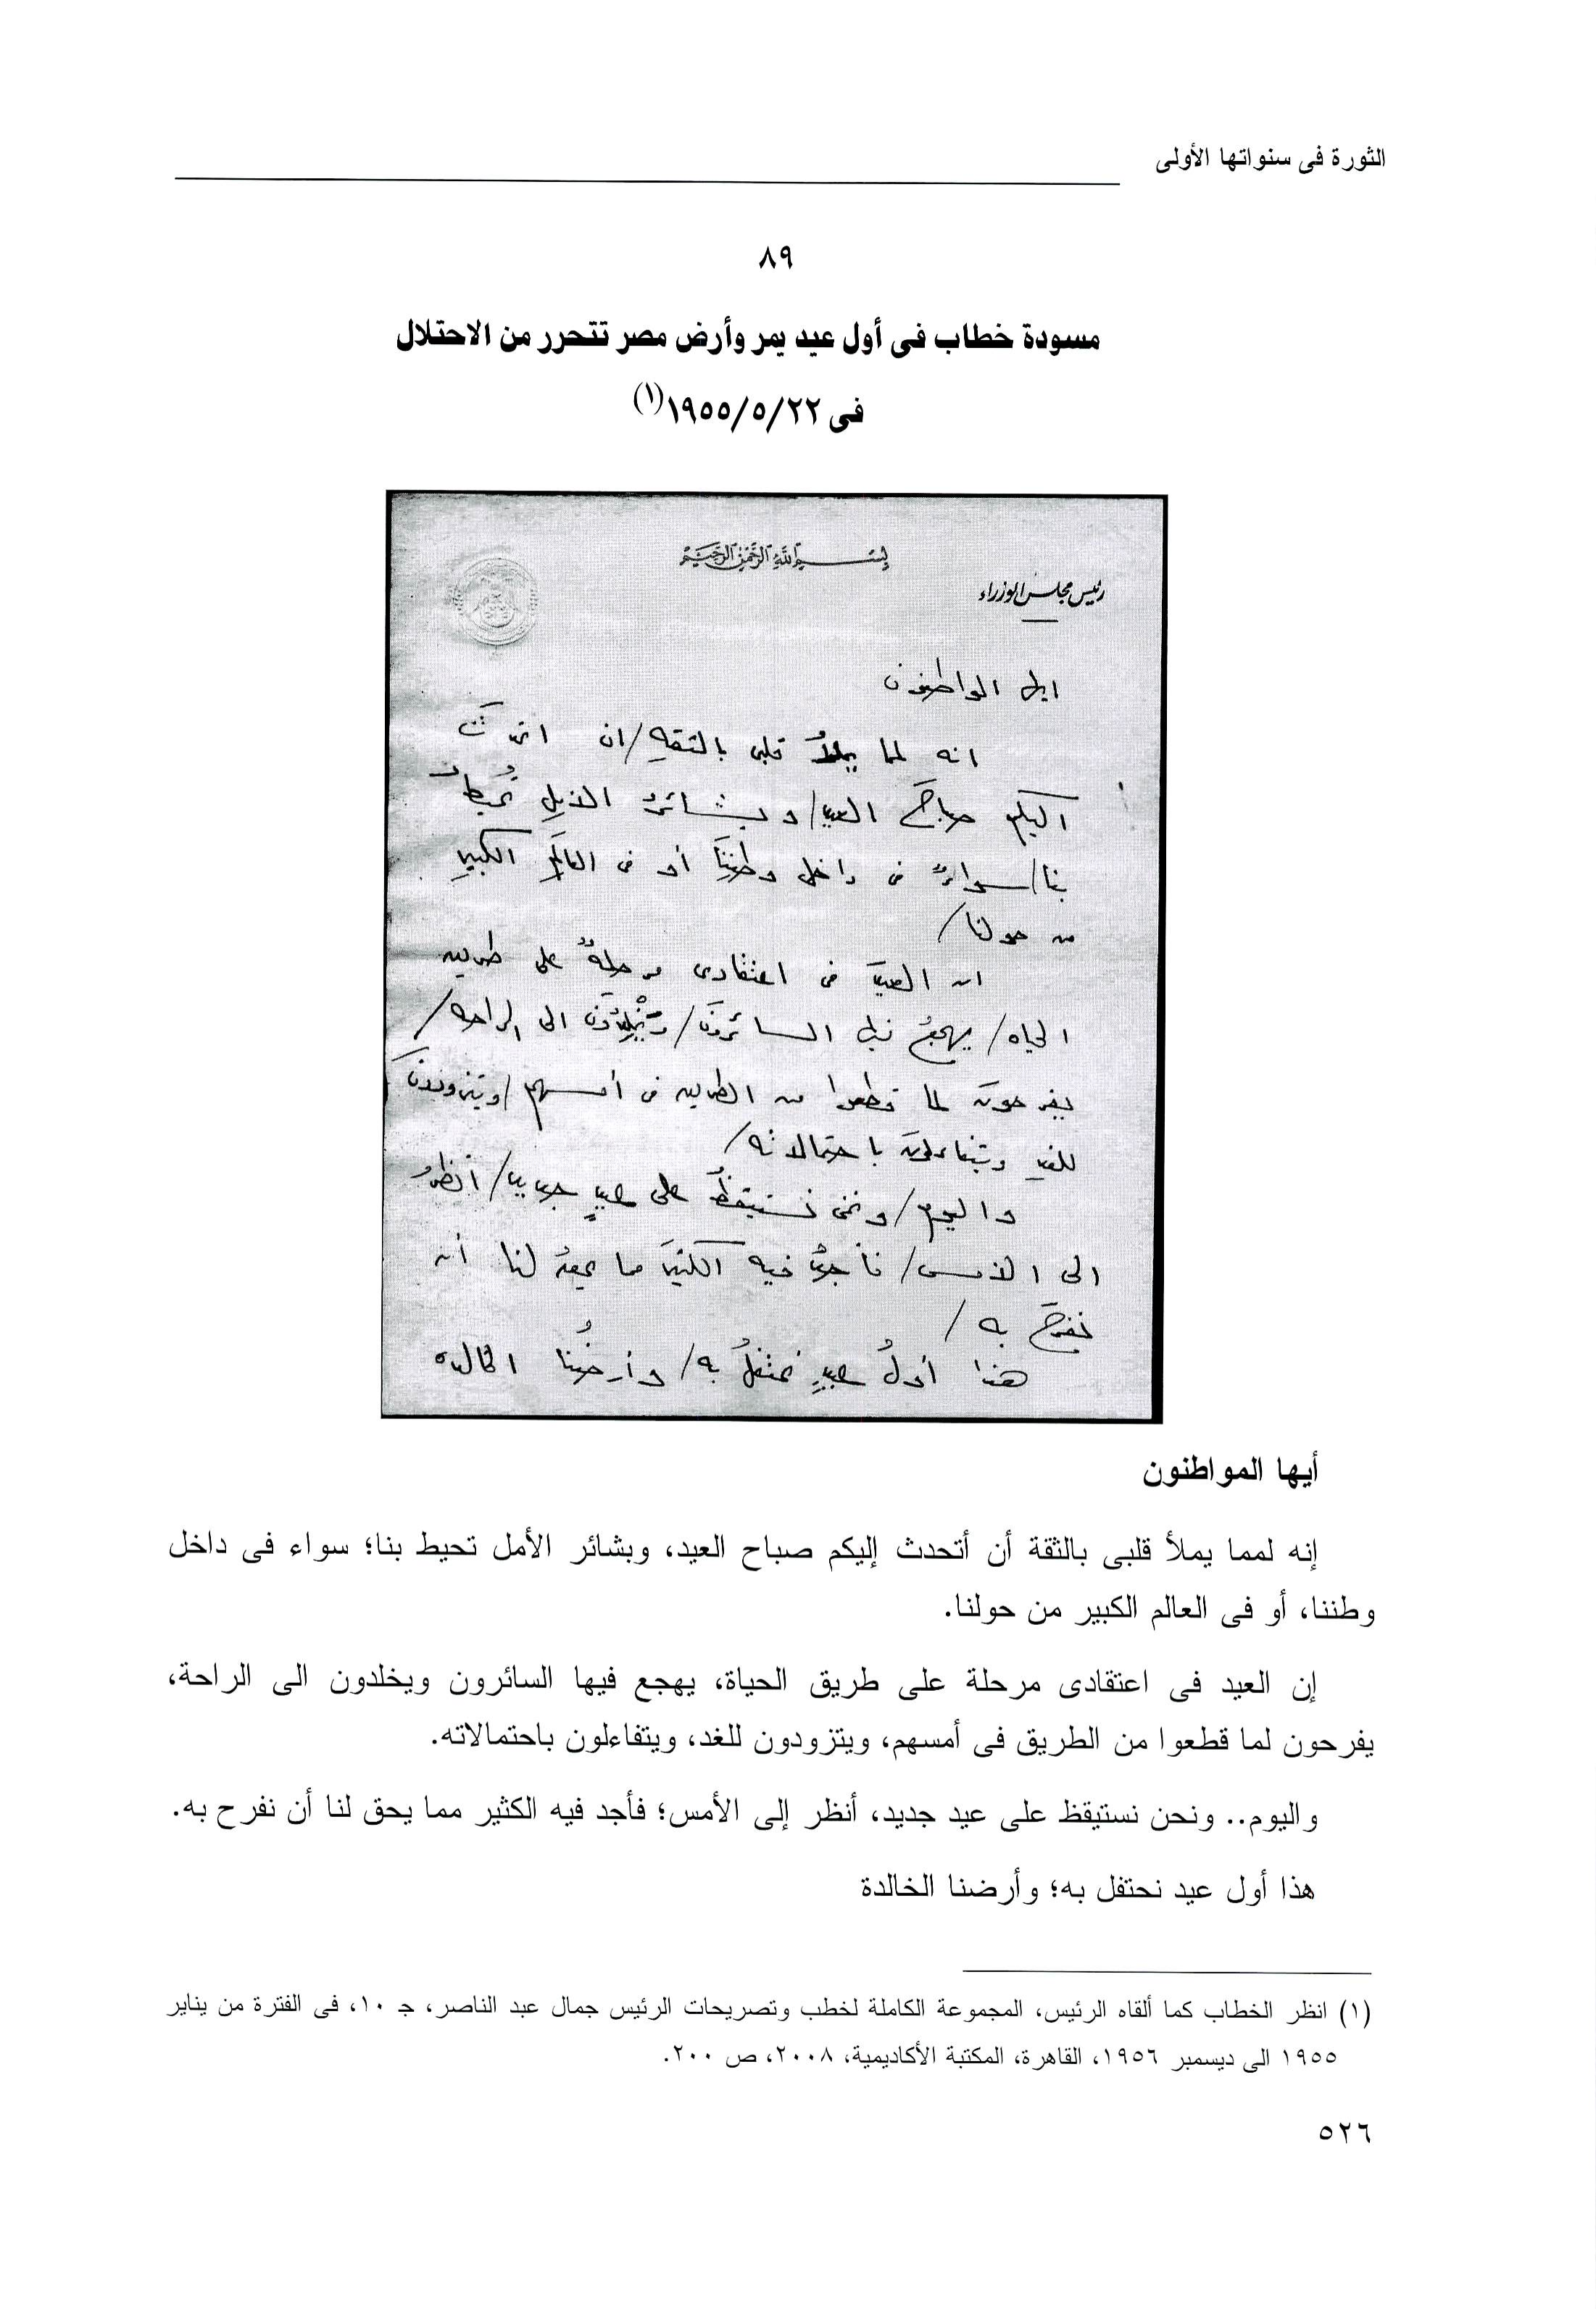 الثورة فى سنواتها الأولى
٨٩
مسودة خطاب فى أول عيد يمر وأرض مصر تتحرر من الاحتلال
فى ١٩٥٥/٥/٢٢(١)
بسم الله الرحمن الرحيم
رئيس مجلس الوزراء
ايها المواطنون
انه لمما يملأُ قلبى بالثقهِ/ان اتحدثَ
اليكم صباحَ العيد/وبشائرُ الاملِ تحيطُ
بنا/سواءٌ فى داخل وطنِنَا أو فى العالَمِ الكبيرِ
من حولنا/
ان العيدَ فى اعتقادى مرحلةٌ على طريق
الحياه/يهجعُ فيها السائرونَ/ويخْلِدُونَ الى الراحه/
يفرحون لما قطعوا من الطريق فى أمسهم/ويتزودونَ
للغدِ ويتفاءلون باحتمالاته/
واليوم/ونحن نستيقظُ على عيدٍ جديد/أنظرُ
الى الامس/فأجدُ فيه الكثيرَ مما يحقُ لنا أن
نفرحَ به/
هذا أولُ عيدٍ نحتفلُ به/وأرضُنا الخالده
أيها المواطنون
إنه لمما يملأ قلبى بالثقة أن أتحدث إليكم صباح العيد، وبشائر الأمل تحيط بنا؛ سواء فى داخل
وطننا، أو فى العالم الكبير من حولنا.
إن العيد فى اعتقادى مرحلة على طريق الحياة، يهجع فيها السائرون ويخلدون الى الراحة،
يفرحون لما قطعوا من الطريق فى أمسهم، ويتزودون للغد، ويتفاءلون باحتمالاته.
واليوم.. ونحن نستيقظ على عيد جديد، أنظر إلى الأمس؛ فأجد فيه الكثير مما يحق لنا أن نفرح به.
هذا أول عيد نحتفل به؛ وأرضنا الخالدة
(١) انظر الخطاب كما ألقاه الرئيس، المجموعة الكاملة لخطب وتصريحات الرئيس جمال عبد الناصر، جـ ١٠، فى الفترة من يناير
١٩٥٥ الى ديسمبر ١٩٥٦، القاهرة، المكتبة الأكاديمية، ٢٠٠٨، ص ٢٠٠.
٥٢٦